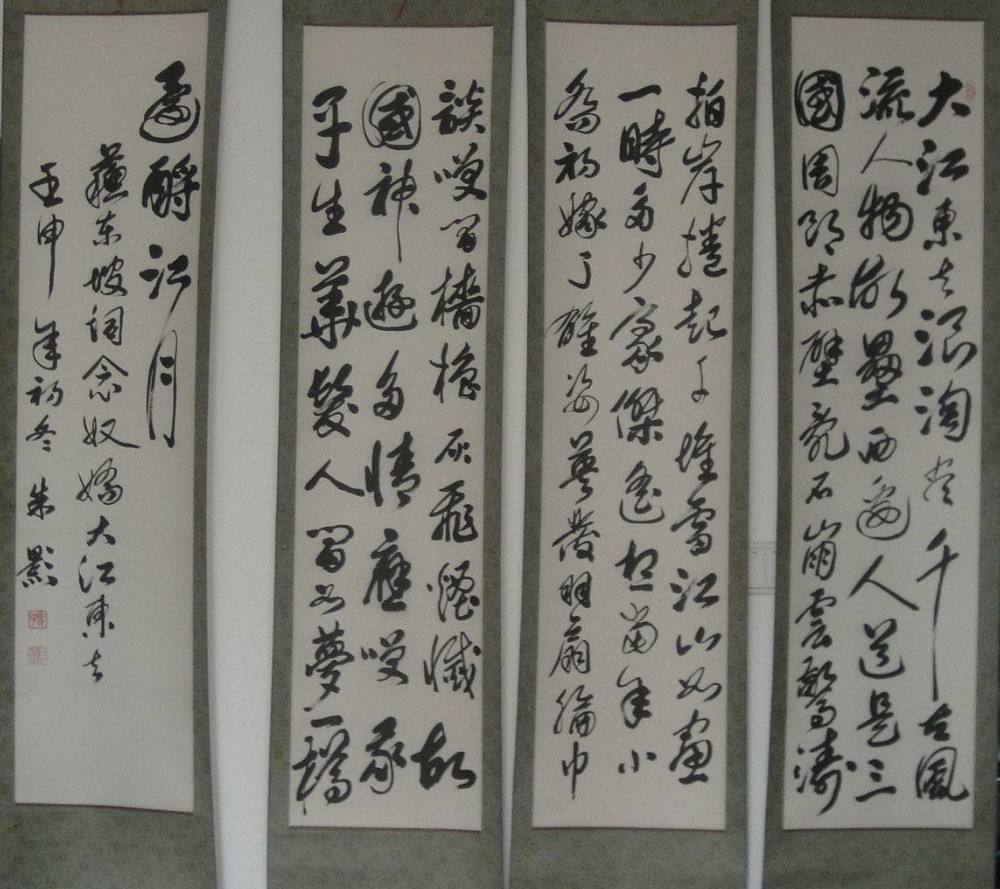 大江東去浪淘尽千古風
流人物故壘西邊人道是三
國周郎赤壁亂石崩雲驚濤
拍岸捲起千堆雪江山如畫
一時多少豪傑遙想當年小
喬初嫁了雄姿英發羽扇綸巾
談笑間檣櫓灰飛煙滅故
國神遊多情應笑我
早生華髮人間如夢一樽
還酹江月
蘇东坡词念奴嬌大江東去
壬申年初冬朱影